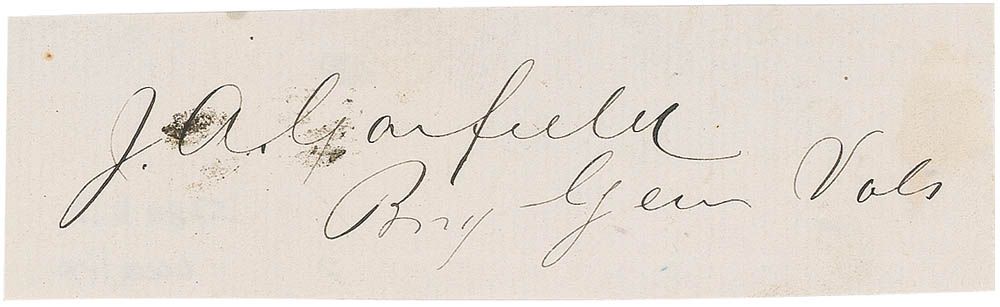 J. A. Garfield
Brig Gen Vols